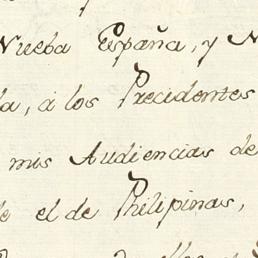 Nueba España, y N
la, á los Precidentes
mis Audiencias de
e el de Philipinas,